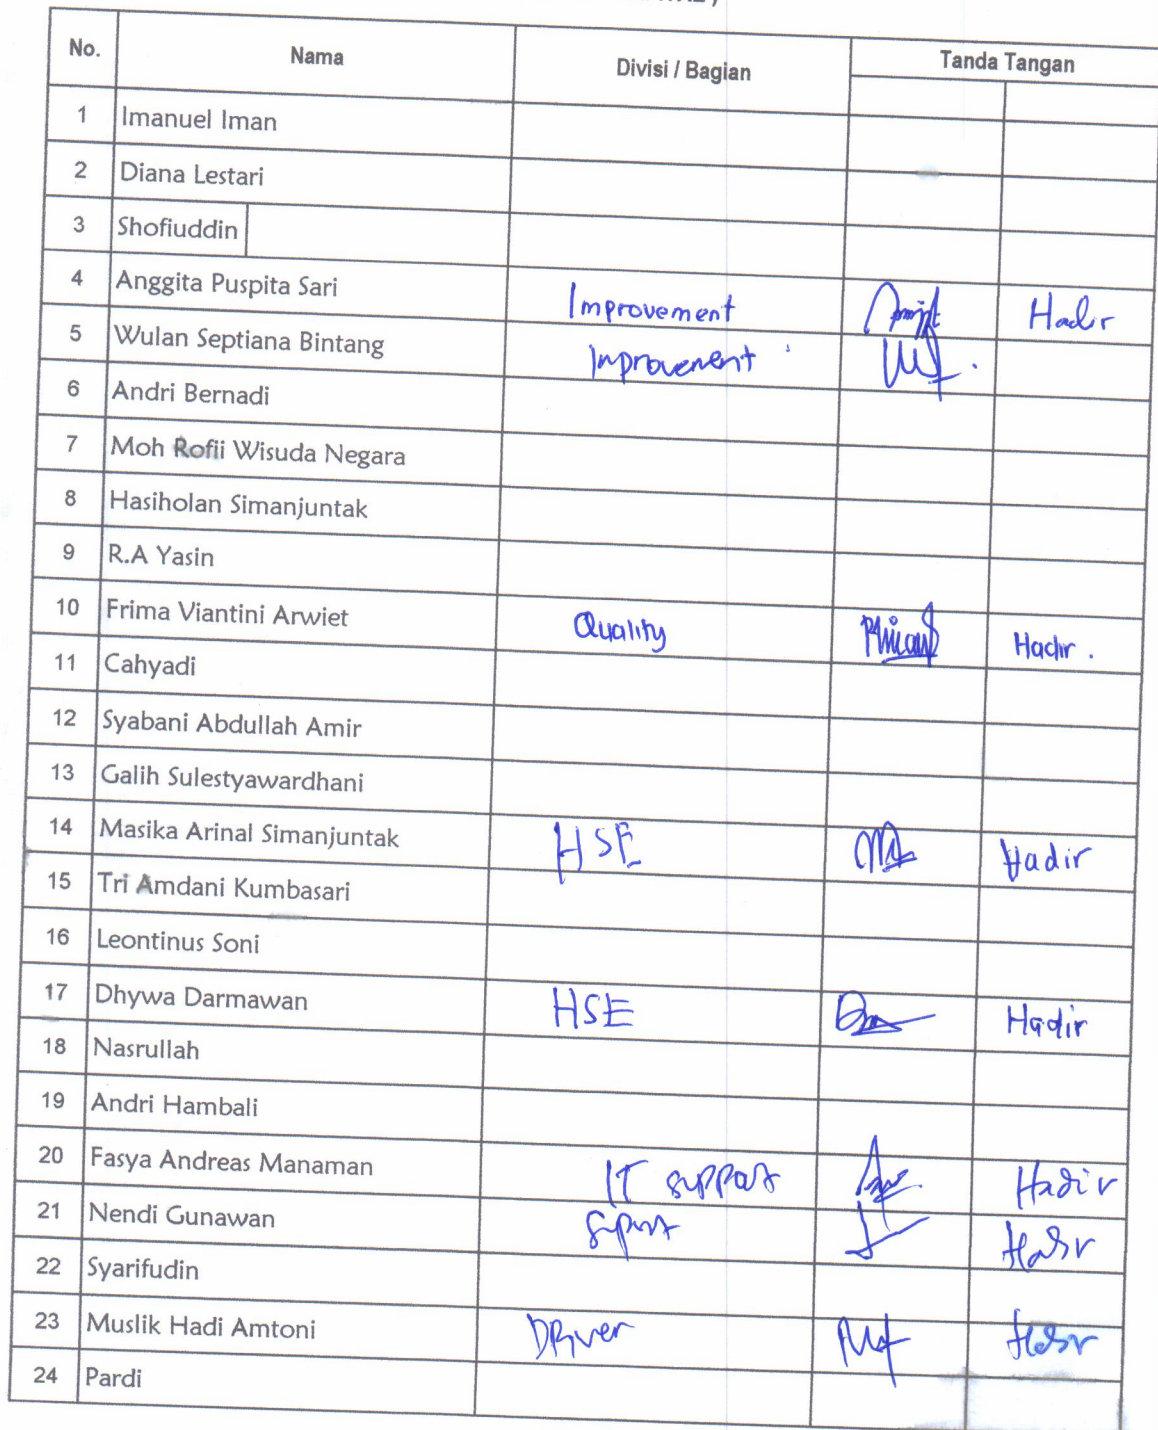 No. Nama Divisi / Bagian Tanda Tangan
1 Imanuel Iman
2 Diana Lestari
3 Shofiuddin
4 Anggita Puspita Sari Improvement Hadir
5 Wulan Septiana Bintang Improvement
6 Andri Bernadi
7 Moh Rofii Wisuda Negara
8 Hasiholan Simanjuntak
9 R.A Yasin
10 Frima Viantini Arwiet Quality Hadir .
11 Cahyadi
12 Syabani Abdullah Amir
13 Galih Sulestyawardhani
14 Masika Arinal Simanjuntak HSE Hadir
15 Tri Amdani Kumbasari
16 Leontinus Soni
17 Dhywa Darmawan HSE Hadir
18 Nasrullah
19 Andri Hambali
20 Fasya Andreas Manaman IT support Hadir
21 Nendi Gunawan Hadir
22 Syarifudin
23 Muslik Hadi Amtoni Driver Hadir
24 Pardi